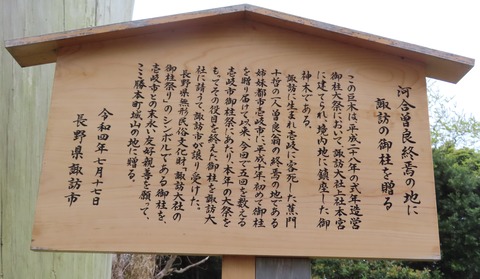 河合曽良終焉の地に
諏訪の御柱を贈る
この巨木は、平成二十八年の式年造営
御柱大祭において、諏訪大社上社本宮
に建てられ、境内地に鎮座した御
神木である。
諏訪に生まれ壱岐に客死した蕉門
十哲の一人曽良翁の終焉の地である
姉妹都市壱岐市に、平成十年、初めて御柱
を贈り届けて以来、今回で五回を数える
壱岐市御柱祭にあたり、本年の大祭を
もってその役目を終えた御柱を諏訪大
社に請うて、諏訪市が譲り受けた。
長野県無形民俗文化財「諏訪大社の
御柱祭り」のシンボルである御柱を、
壱岐市との末永い友好親善を願って、
ここ勝本町城山の地に贈る。
令和四年七月十七日
長野県諏訪市